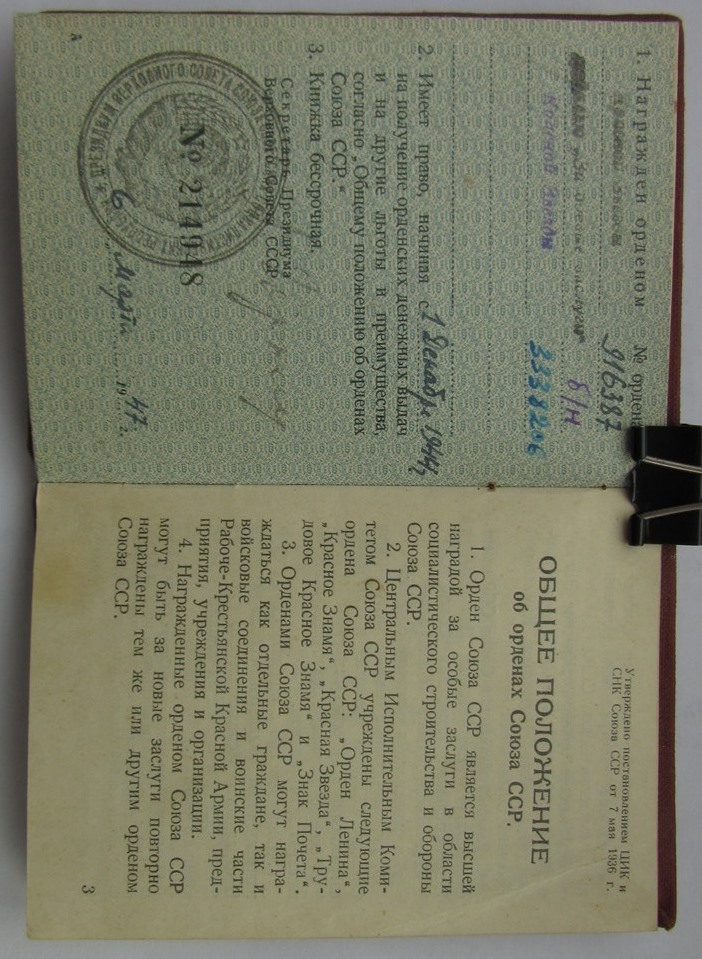 1. Награжден орденом № ордена
Красной Звезды 916387
медалью „За боевые заслуги“ б/н
Красной Звезды 3338206
2. Имеет право, начиная с 1 Декабр. 1944 г.
на получение орденских денежных выдач
и на другие льготы и преимущества,
согласно „Общему положению об орденах
Союза ССР.“
3. Книжка бессрочная.
Секретарь Президиума
Верховного Совета СССР
№ 214948
6 Марта 1947 г.
Утверждено постановлением ЦИК и
СНК Союза ССР от 7 мая 1936 г.
ОБЩЕЕ ПОЛОЖЕНИЕ
об орденах Союза ССР.
1. Орден Союза ССР является высшей
наградой за особые заслуги в области
социалистического строительства и обороны
Союза ССР.
2. Центральным Исполнительным Коми-
тетом Союза ССР учреждены следующие
ордена Союза ССР: „Орден Ленина“,
„Красное Знамя“, „Красная Звезда“, „Тру-
довое Красное Знамя“ и „Знак Почета“.
3. Орденами Союза ССР могут награ-
ждаться как отдельные граждане, так и
войсковые соединения и воинские части
Рабоче-Крестьянской Красной Армии, пред-
приятия, учреждения и организации.
4. Награжденные орденом Союза ССР
могут быть за новые заслуги повторно
награждены тем же или другим орденом
Союза ССР.
3